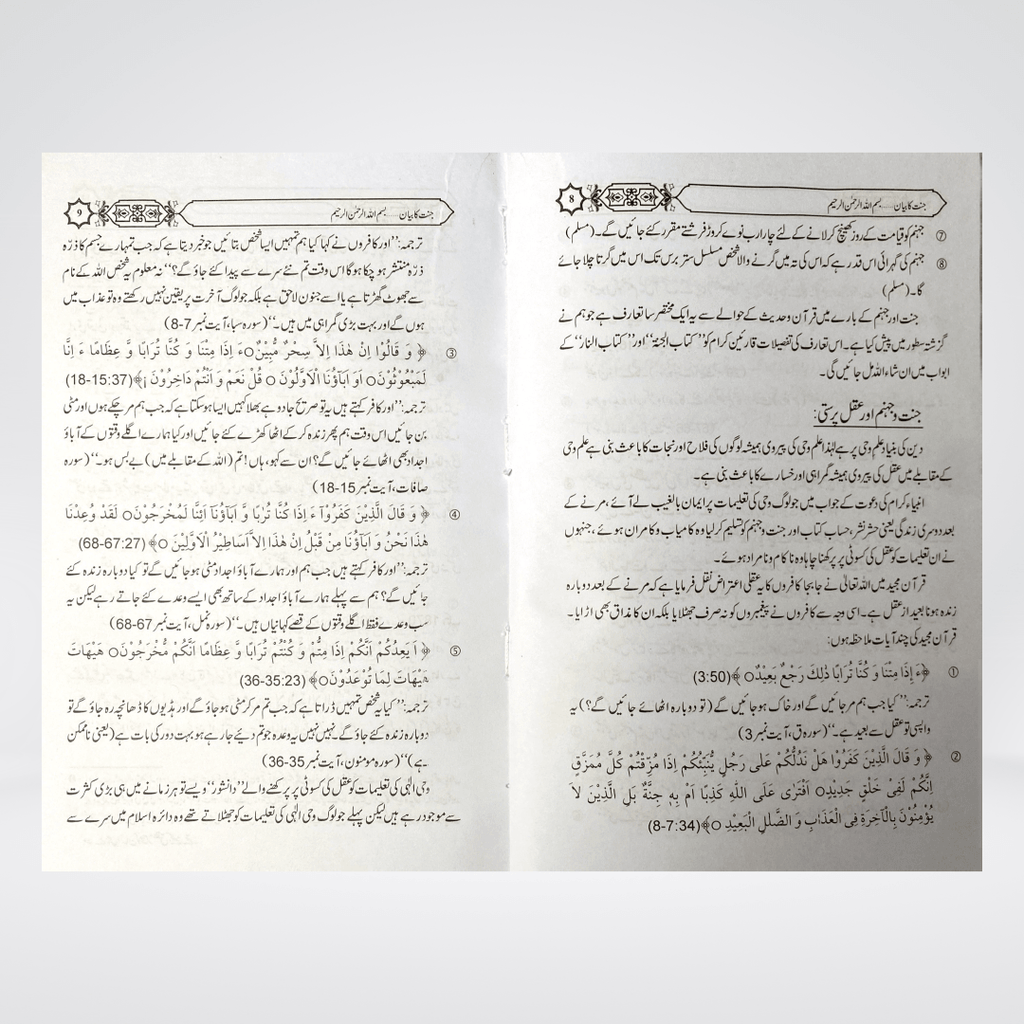 جنت کا بیان.....بسم اللہ الرحمٰن الرحیم
8
⑦ جہنم کو قیامت کے روز کھینچ کر لانے کے لئے چار ارب نوے کروڑ فرشتے مقرر کئے جائیں گے۔ (مسلم)
⑧ جہنم کی گہرائی اس قدر ہے کہ اس کی تہ میں گرنے والا شخص مسلسل ستر برس تک اس میں گرتا چلا جائے
گا۔ (مسلم)
جنت اور جہنم کے بارے میں قرآن و حدیث کے حوالے سے یہ ایک مختصر سا تعارف ہے جو ہم نے
گزشتہ سطور میں پیش کیا ہے۔ اس تعارف کی تفصیلات قارئین کرام کو ’’کتاب الجنۃ‘‘ اور ’’کتاب النار‘‘ کے
ابواب میں ان شاء اللہ مل جائیں گی۔
جنت و جہنم اور عقل پرستی:
دین کی بنیاد علم وحی پر ہے لہٰذا علم وحی کی پیروی ہمیشہ لوگوں کی فلاح اور نجات کا باعث بنی ہے علم وحی
کے مقابلے میں عقل کی پیروی ہمیشہ گمراہی اور خسارے کا باعث بنی ہے۔
انبیاء کرام کی دعوت کے جواب میں جو لوگ وحی کی تعلیمات پر ایمان بالغیب لے آئے، مرنے کے
بعد دوسری زندگی یعنی حشر نشر، حساب کتاب اور جنت و جہنم کو تسلیم کر لیا وہ کامیاب و کامران ہوئے، جنہوں
نے ان تعلیمات کو عقل کی کسوٹی پر پرکھنا چاہا وہ ناکام و نامراد ہوئے۔
قرآن مجید میں اللہ تعالیٰ نے جا بجا کافروں کا یہ عقلی اعتراض نقل فرمایا ہے کہ مرنے کے بعد دوبارہ
زندہ ہونا بعید از عقل ہے۔ اسی وجہ سے کافروں نے پیغمبروں کو نہ صرف جھٹلایا بلکہ ان کا مذاق بھی اڑایا۔
قرآن مجید کی چند آیات ملاحظہ ہوں:
① ﴿ءَ إِذَا مِتْنَا وَ كُنَّا تُرَابًا ذٰلِكَ رَجْعٌ بَعِيْدٌ○﴾(3:50)
ترجمہ: ’’کیا جب ہم مر جائیں گے اور خاک ہو جائیں گے (تو دوبارہ اٹھائے جائیں گے؟) یہ
واپسی تو عقل سے بعید ہے۔‘‘ (سورہ ق، آیت نمبر 3)
② ﴿وَ قَالَ الَّذِيْنَ كَفَرُوْا هَلْ نَدُلُّكُمْ عَلٰى رَجُلٍ يُّنَبِّئُكُمْ اِذَا مُزِّقْتُمْ كُلَّ مُمَزَّقٍ
اِنَّكُمْ لَفِيْ خَلْقٍ جَدِيْدٍ○ اَفْتَرٰى عَلَى اللّٰهِ كَذِبًا اَمْ بِهٖ جِنَّةٌ بَلِ الَّذِيْنَ لاَ
يُؤْمِنُوْنَ بِالْاٰخِرَةِ فِى الْعَذَابِ وَ الضَّلٰلِ الْبَعِيْدِ ○﴾(8-7:34)
جنت کا بیان.....بسم اللہ الرحمٰن الرحیم
9
ترجمہ: ’’اور کافروں نے کہا کیا ہم تمہیں ایسا شخص بتائیں جو خبر دیتا ہے کہ جب تمہارے جسم کا ذرہ
ذرہ منتشر ہو چکا ہوگا اس وقت تم نئے سرے سے پیدا کئے جاؤ گے؟‘‘ نہ معلوم یہ شخص اللہ کے نام
سے جھوٹ گھڑتا ہے یا اسے جنون لاحق ہے بلکہ جو لوگ آخرت پر یقین نہیں رکھتے وہ تو عذاب میں
ہوں گے اور بہت بڑی گمراہی میں ہیں۔‘‘ (سورہ سبا، آیت نمبر 7-8)
③ ﴿وَ قَالُوْا اِنْ هٰذَا اِلاَّ سِحْرٌ مُّبِيْنٌ○ءَ اِذَا مِتْنَا وَ كُنَّا تُرَابًا وَّ عِظَامًا ءَ اِنَّا
لَمَبْعُوْثُوْنَ○ اَوَ اٰبَاؤُنَا الْاَوَّلُوْنَ ○ قُلْ نَعَمْ وَ اَنْتُمْ دَاخِرُوْنَ ○﴾(18-15:37)
ترجمہ: ’’اور کافر کہتے ہیں یہ تو صریح جادو ہے بھلا کہیں ایسا ہو سکتا ہے کہ جب ہم مر چکے ہوں اور مٹی
بن جائیں اس وقت ہم پھر زندہ کر کے اٹھا کھڑے کئے جائیں اور کیا ہمارے اگلے وقتوں کے آباؤ
اجداد بھی اٹھائے جائیں گے؟ ان سے کہو، ہاں! تم (اللہ کے مقابلے میں) بے بس ہو۔‘‘ (سورہ
صافات، آیت نمبر 15-18)
④ ﴿وَ قَالَ الَّذِيْنَ كَفَرُوْآ ءَ اِذَا كُنَّا تُرٰبًا وَّ اٰبَاؤُنَآ اَئِنَّا لَمُخْرَجُوْنَ○ لَقَدْ وُعِدْنَا
هٰذَا نَحْنُ وَ اٰبَاؤُنَا مِنْ قَبْلُ اِنْ هٰذَا اِلاَّ اَسَاطِيْرُ الْاَوَّلِيْنَ ○﴾(68-67:27)
ترجمہ: ’’اور کافر کہتے ہیں جب ہم اور ہمارے آباؤ اجداد مٹی ہو جائیں گے تو کیا دوبارہ زندہ کئے
جائیں گے؟ ہم سے پہلے ہمارے آباؤ اجداد کے ساتھ بھی ایسے وعدے کئے جاتے رہے لیکن یہ
سب وعدے فقط اگلے وقتوں کے قصے کہانیاں ہیں۔‘‘ (سورہ نمل، آیت نمبر 67-68)
⑤ ﴿اَيَعِدُكُمْ اَنَّكُمْ اِذَا مِتُّمْ وَ كُنْتُمْ تُرَابًا وَّ عِظَامًا اَنَّكُمْ مُّخْرَجُوْنَ○ هَيْهَاتَ
هَيْهَاتَ لِمَا تُوْعَدُوْنَ○﴾(36-35:23)
ترجمہ: ’’کیا یہ شخص تمہیں ڈراتا ہے کہ جب تم مر کر مٹی ہو جاؤ گے اور ہڈیوں کا ڈھانچہ رہ جاؤ گے تو
دوبارہ زندہ کئے جاؤ گے۔ نہیں نہیں یہ وعدہ جو تم دیئے جا رہے ہو بہت دور کی بات ہے (یعنی ناممکن
ہے)‘‘ (سورہ مومنون، آیت نمبر 35-36)
وحی الٰہی کی تعلیمات کو عقل کی کسوٹی پر پرکھنے والے ’’دانشور‘‘ ویسے تو ہر زمانے میں ہی بڑی کثرت
سے موجود رہے ہیں لیکن پہلے جو لوگ وحی الٰہی کی تعلیمات کو جھٹلاتے تھے وہ دائرہ اسلام میں سرے سے